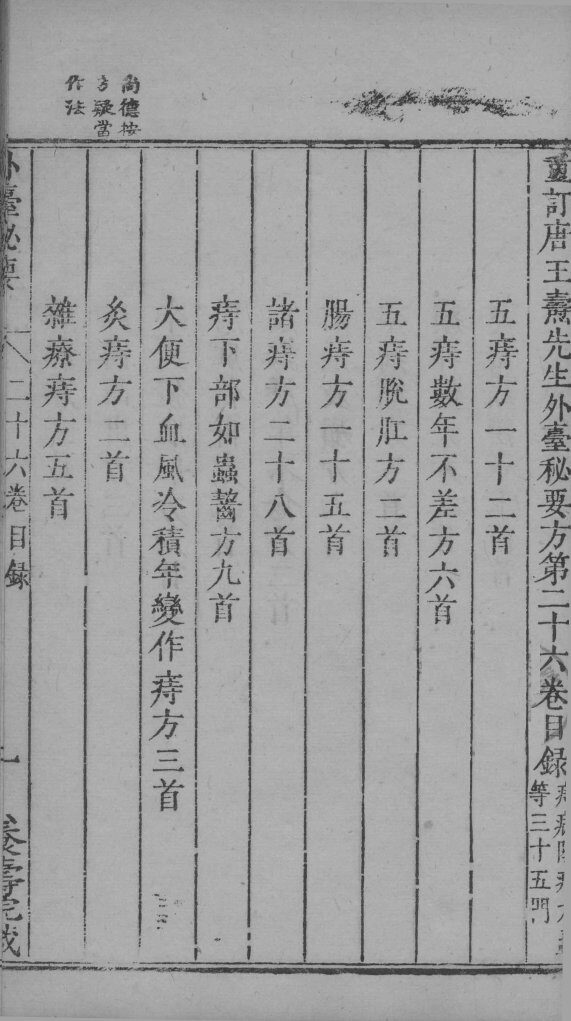 重訂唐王燾先生外臺秘要方第二十六卷目錄
等三十五門
五痔方一十二首
五痔數年不差方六首
五痔脫肛方二首
腸痔方一十五首
諸痔方二十八首
痔下部如蟲齧方九首
大便下血風冷積年變作痔方三首
灸痔方二首
雜療痔方五首
尚德按
方疑當
作法
外臺秘要
二十六卷目錄
一